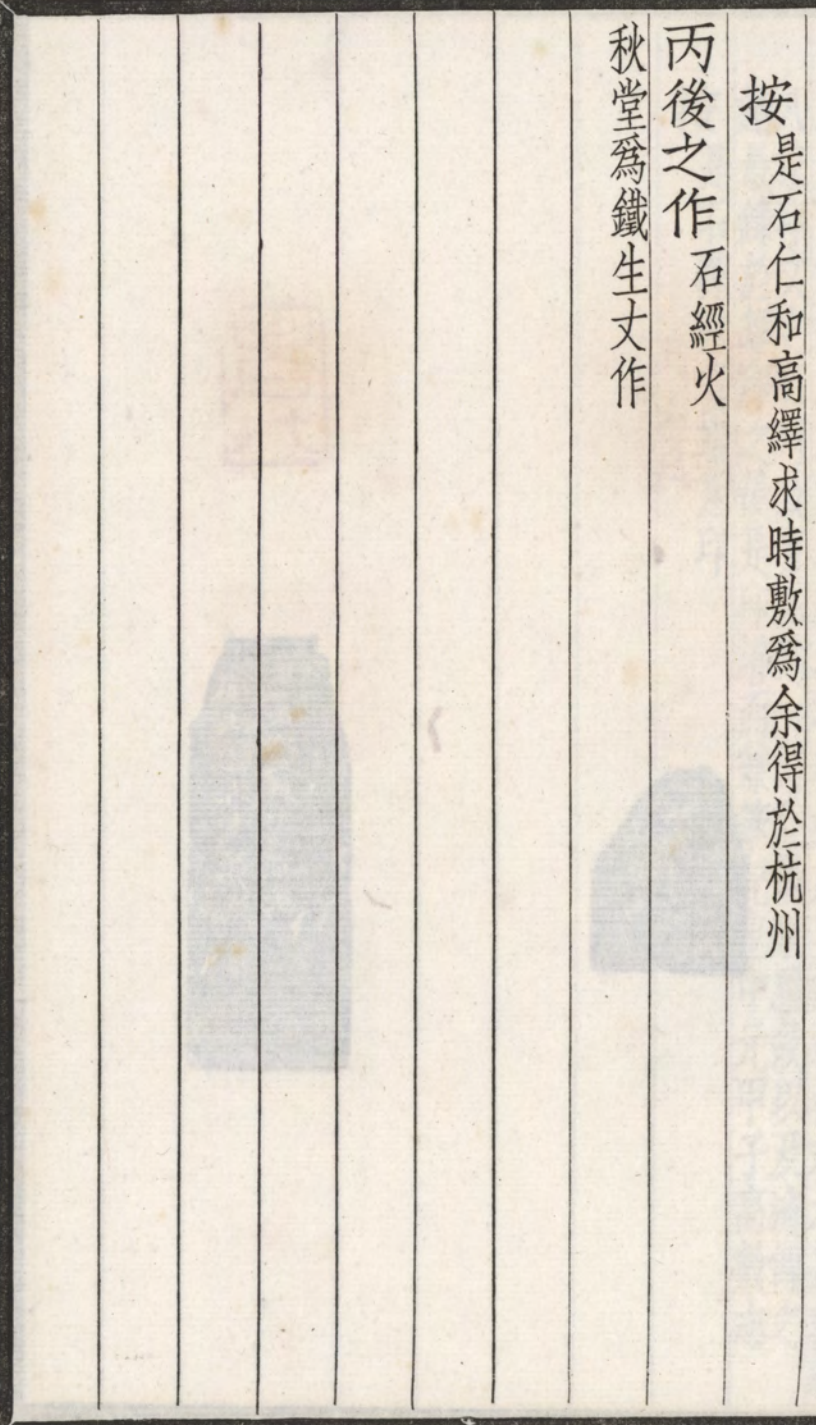 按是石仁和高繹求時敷爲余得於杭州
丙後之作石經火
秋堂爲鐵生丈作